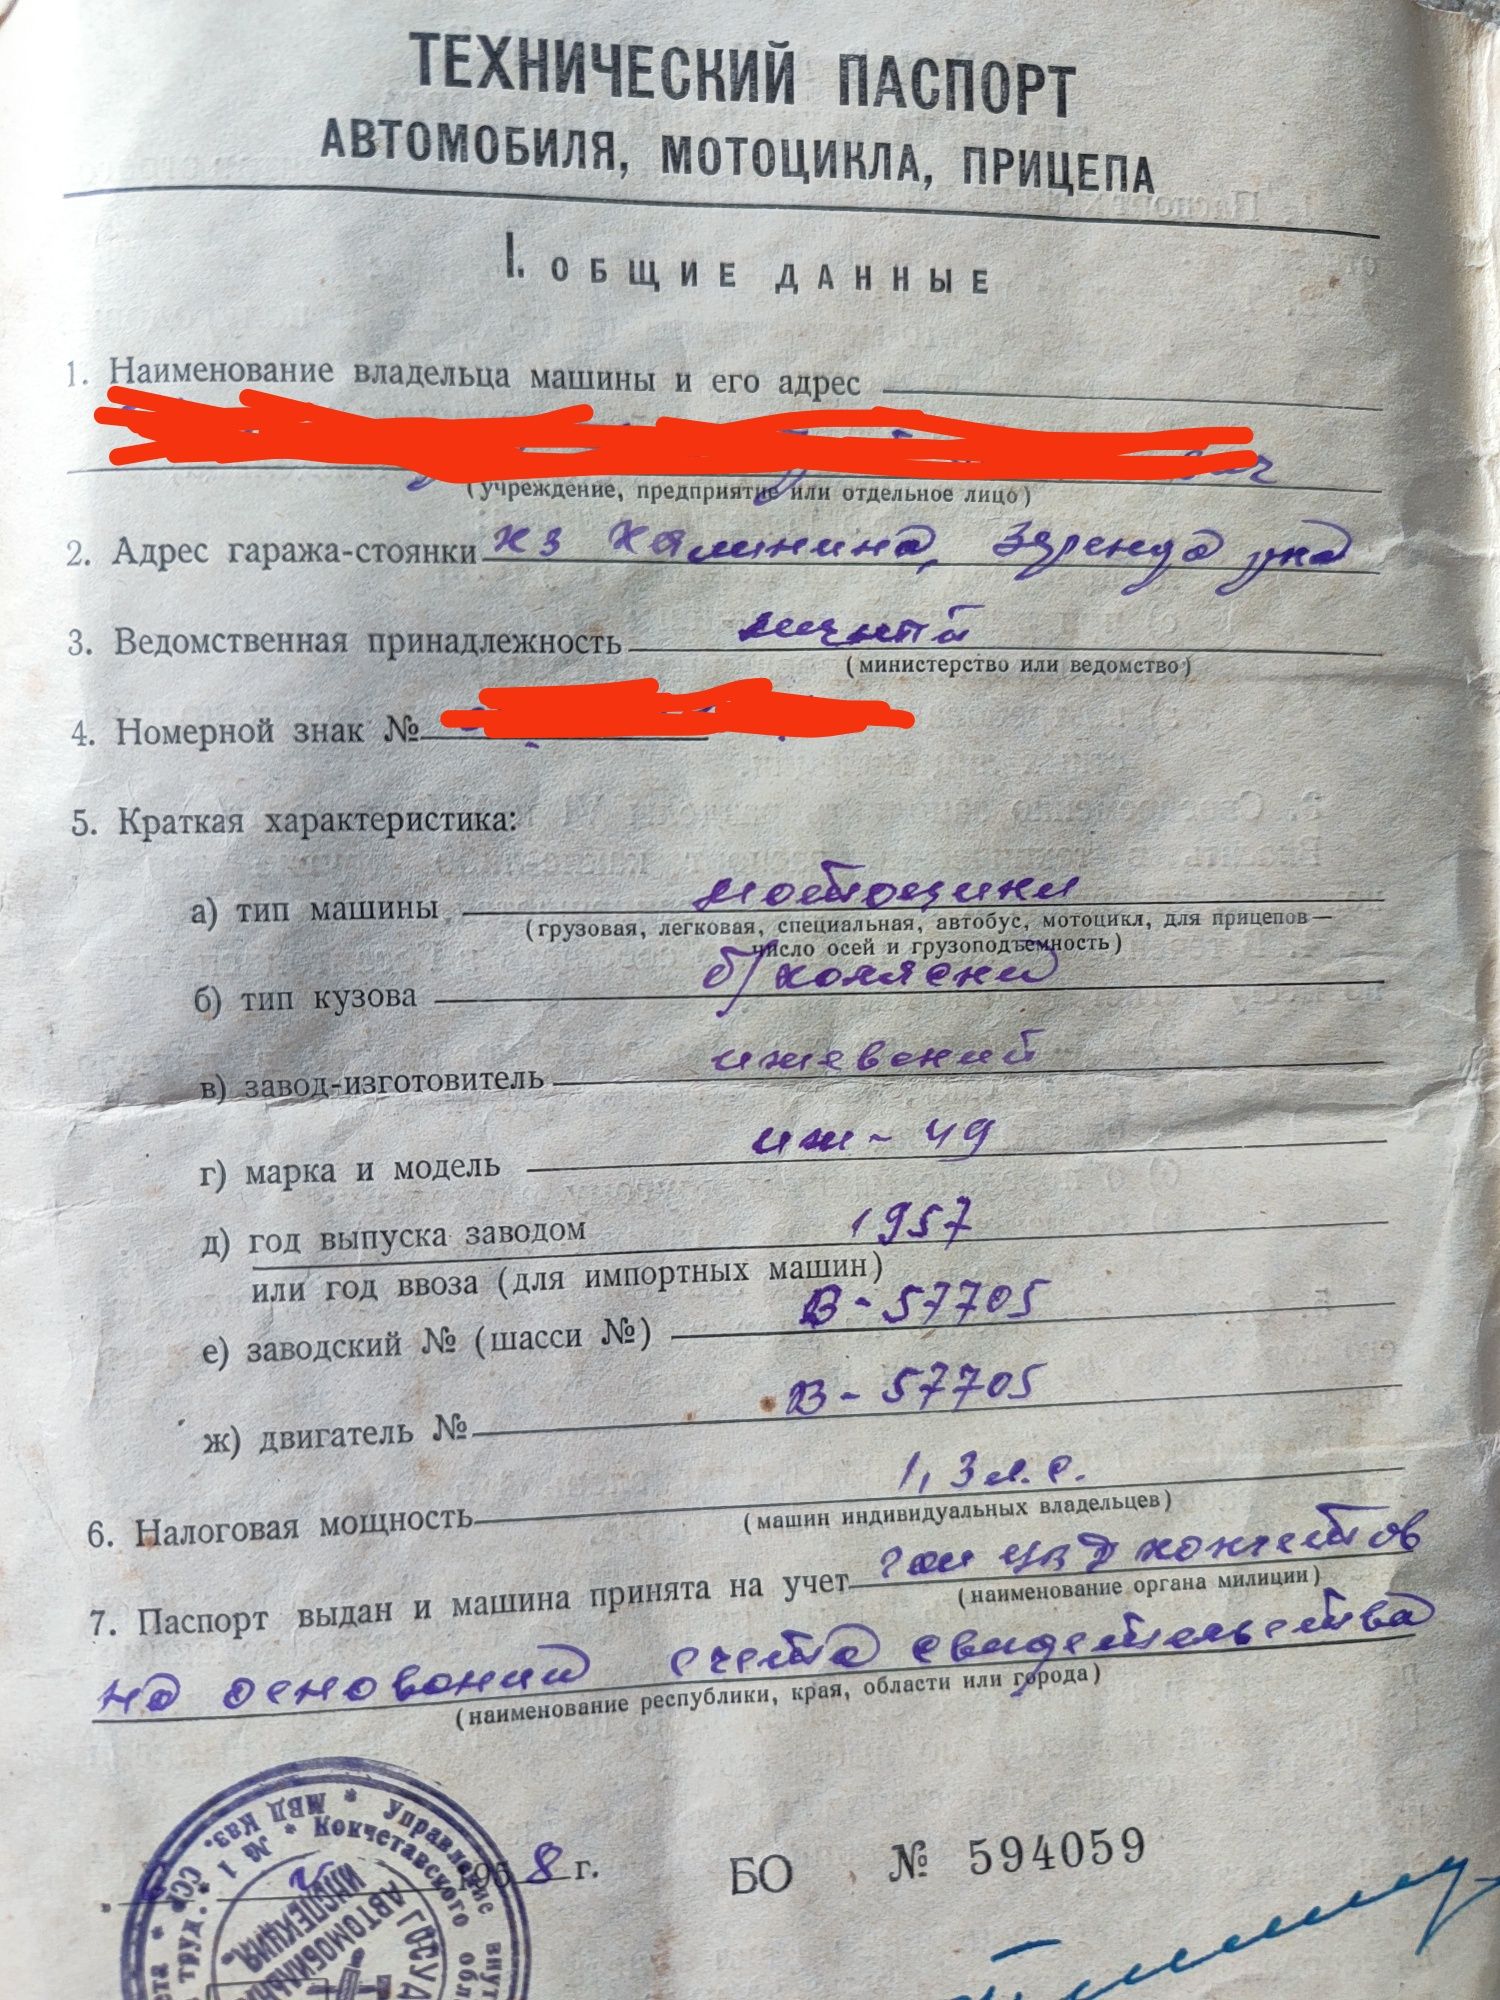 ТЕХНИЧЕСКИЙ ПАСПОРТ
АВТОМОБИЛЯ, МОТОЦИКЛА, ПРИЦЕПА
I. ОБЩИЕ ДАННЫЕ
1. Наименование владельца машины и его адрес
(учреждение, предприятие или отдельное лицо)
2. Адрес гаража-стоянки кз Калинина, Зеренда
3. Ведомственная принадлежность
(министерство или ведомство)
4. Номерной знак №
5. Краткая характеристика:
а) тип машины мотоцикл
(грузовая, легковая, специальная, автобус, мотоцикл, для прицепов—
число осей и грузоподъемность)
б) тип кузова б/коляски
в) завод-изготовитель ижевский
г) марка и модель иж-49
д) год выпуска заводом 1957
или год ввоза (для импортных машин)
е) заводский № (шасси №) В-57705
ж) двигатель № В-57705
6. Налоговая мощность 1,3 л.с.
(машин индивидуальных владельцев)
7. Паспорт выдан и машина принята на учет
(наименование органа милиции)
на основании счета свидетельства
(наименование республики, края, области или города)
1958 г.
БО № 594059
Управление внут
МВД Каз. ССР
№ 1 * Кокчетавского обл
ГОСУ
АВТОМОБИЛЬН
ИНСПЕКЦИЯ